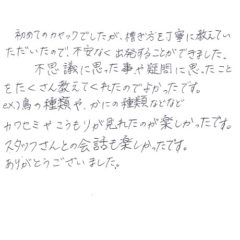 初めてのカヤックでしたが、漕ぎ方を丁寧に教えてい
ただいたので、不安なく出発することができました。
不思議に思った事や疑問に思ったこと
をたくさん教えてくれたのでよかったです。
ex)鳥の種類や、かにの種類などなど
カワセミやこうもりが見れたのが楽しかったです。
スタッフさんとの会話も楽しかったです。
ありがとうございました。